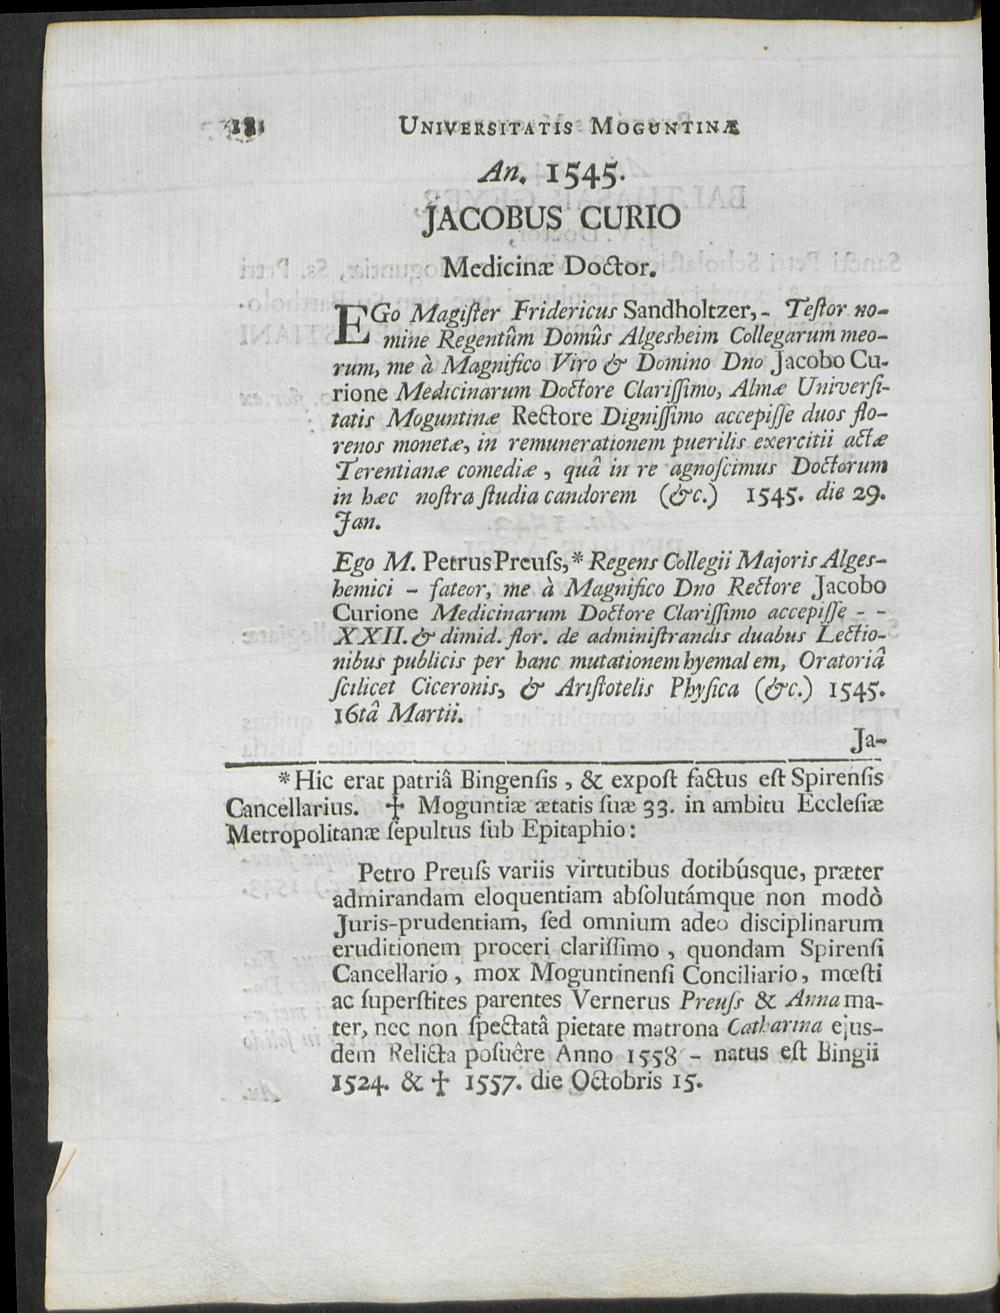 UNIVERSITATIS MOGUNTINÆ
An. 1545.
JACOBUS CURIO
Medicinæ Doctor.
EGo Magiſter Fridericus Sandholtzer, - Teſtor no-
mine Regentûm Domûs Algesheim Collegarum meo-
rum, me à Magnifico Viro & Domino Dno Jacobo Cu-
rione Medicinarum Doctore Clariſſimo, Almæ Univerſi-
tatis Moguntinæ Rectore Digniſſimo accepiſſe duos flo-
renos monetæ, in remunerationem puerilis exercitii actæ
Terentianæ comediæ, quâ in re agnoſcimus Doctorum
in hæc noſtra ſtudia candorem (&c.) 1545. die 29.
Jan.
Ego M. Petrus Preuſs,* Regens Collegii Majoris Alges-
hemici - fateor, me à Magnifico Dno Rectore Jacobo
Curione Medicinarum Doctore Clariſſimo accepiſſe - -
XXII. & dimid. flor. de adminiſtrandis duabus Lectio-
nibus publicis per hanc mutationem hyemalem, Oratoriâ
ſcilicet Ciceronis, & Ariſtotelis Phyſica (&c.) 1545.
16tâ Martii.
Ja-
* Hic erat patriâ Bingenſis, & expoſt factus eſt Spirenſis
Cancellarius. † Moguntiæ ætatis ſuæ 33. in ambitu Eccleſiæ
Metropolitanæ ſepultus ſub Epitaphio:
Petro Preuſs variis virtutibus dotibúsque, præter
admirandam eloquentiam abſolutámque non modò
Juris-prudentiam, ſed omnium adeo disciplinarum
eruditionem proceri clariſſimo, quondam Spirenſi
Cancellario, mox Moguntinenſi Conciliario, mœſti
ac ſuperſtites parentes Vernerus Preuſs & Anna ma-
ter, nec non ſpectatâ pietate matrona Catharina ejus-
dem Relicta poſuêre Anno 1558 - natus eſt Bingii
1524. & † 1557. die Octobris 15.